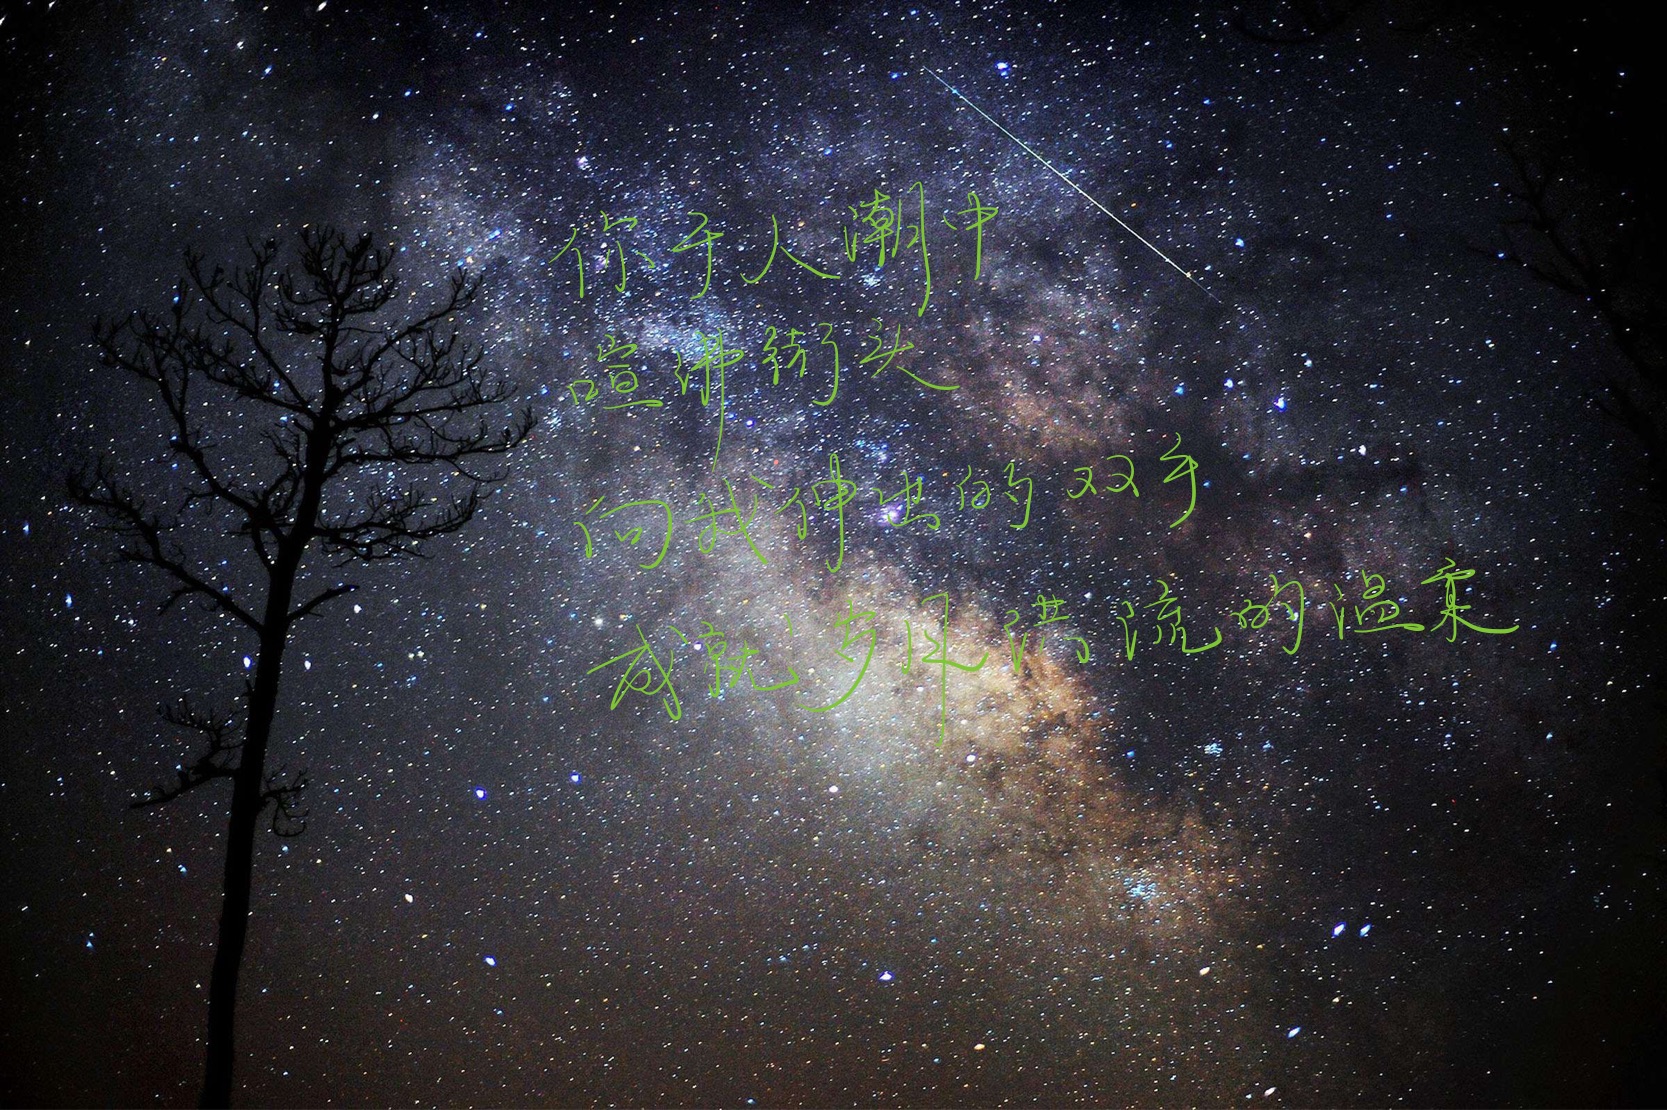 你于人潮中
喧沸街头
向我伸出的双手
成就岁月洪流的温柔